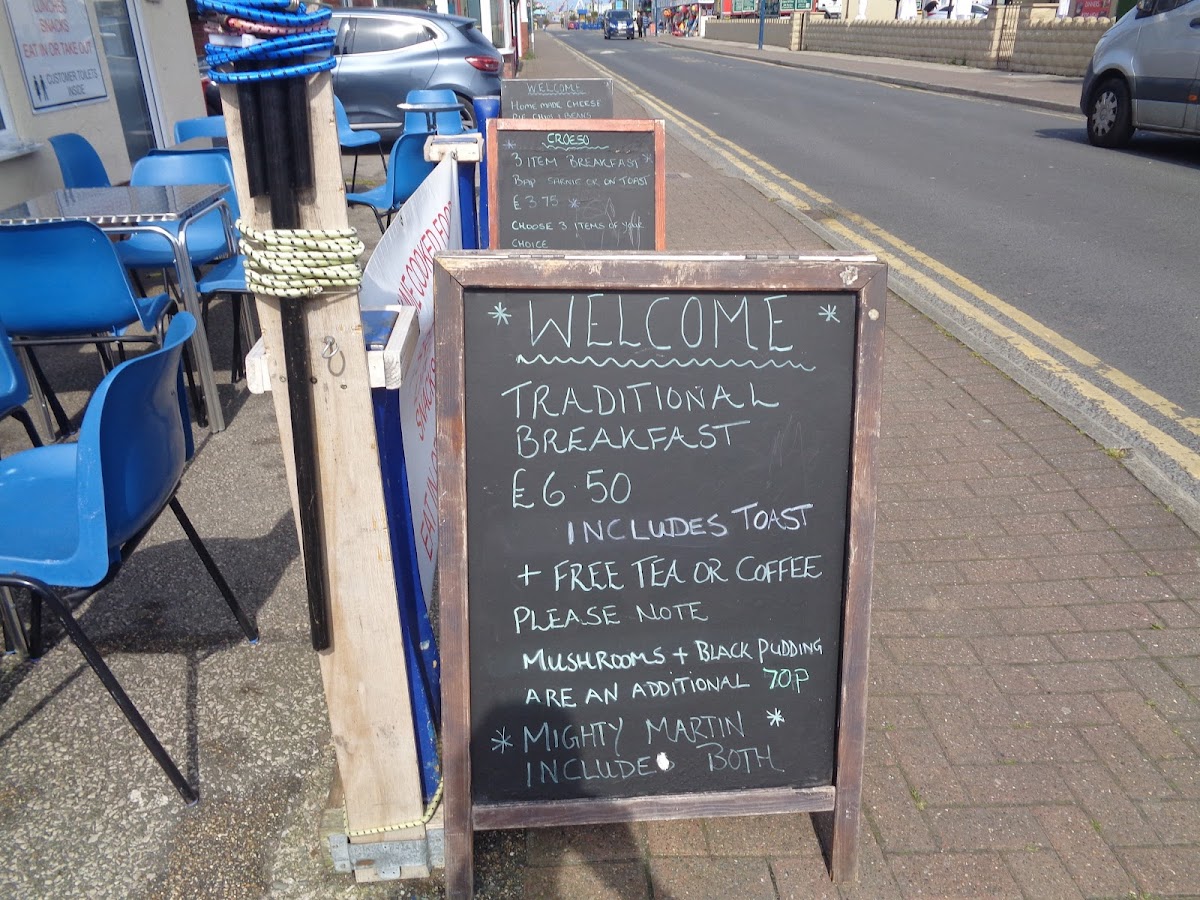 LUNCHES
SNACKS
EAT IN OR TAKE OUT
CUSTOMER TOILETS
INSIDE
WELCOME
HOMEMADE CHEESE
PIE
BEANS
3 ITEM BREAKFAST
BAP SARNIE OR ON TOAST
£3.75
CHOOSE 3 ITEMS OF YOUR
CHOICE
COOKED
SNACKS
EAT IN
* WELCOME *
TRADITIONAL
BREAKFAST
£6.50
INCLUDES TOAST
+ FREE TEA OR COFFEE
PLEASE NOTE
MUSHROOMS + BLACK PUDDING
ARE AN ADDITIONAL 70P
* MIGHTY MARTIN *
INCLUDES BOTH